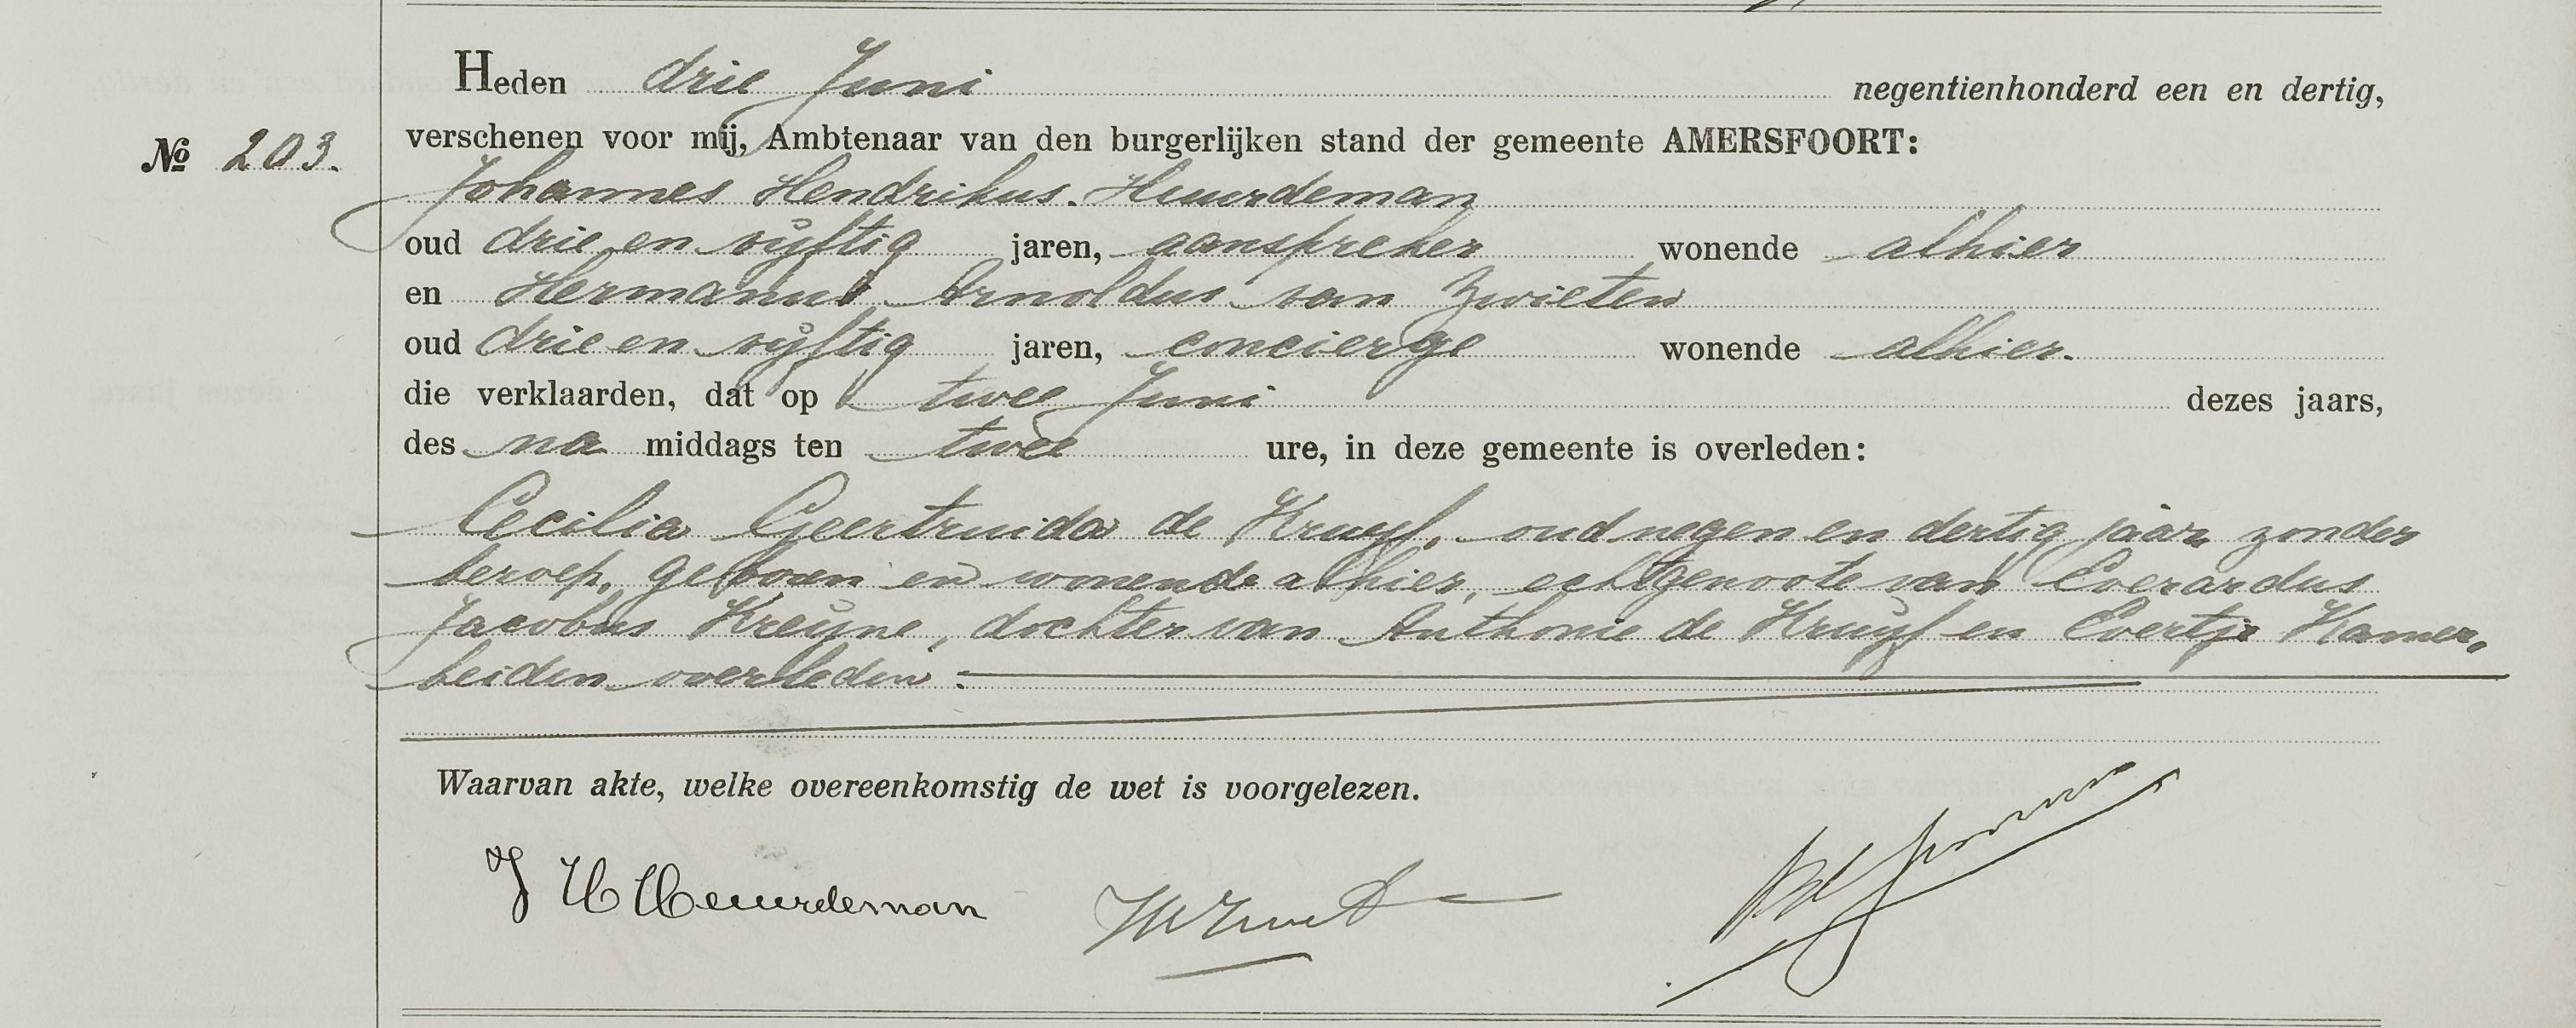 Heden drie Juni negentienhonderd een en dertig,
verschenen voor mij, Ambtenaar van den burgerlijken stand der gemeente AMERSFOORT:
№ 203.
Johannes Hendrikus Huurdeman
oud drie en vijftig jaren, aanspreker wonende alhier
en Hermanus Arnoldus van Zwieten
oud drie en vijftig jaren, concierge wonende alhier.
die verklaarden, dat op twee Juni dezes jaars,
des na middags ten twee ure, in deze gemeente is overleden:
Cecilia Geertruida de Kruyf, oud negen en dertig jaar, zonder
beroep, geboren en wonende alhier, echtgenoote van Everardus
Jacobus Kreijne, dochter van Anthonie de Kruyf en Evertje Hamer,
beiden overleden.
Waarvan akte, welke overeenkomstig de wet is voorgelezen.
J H Heuurdeman